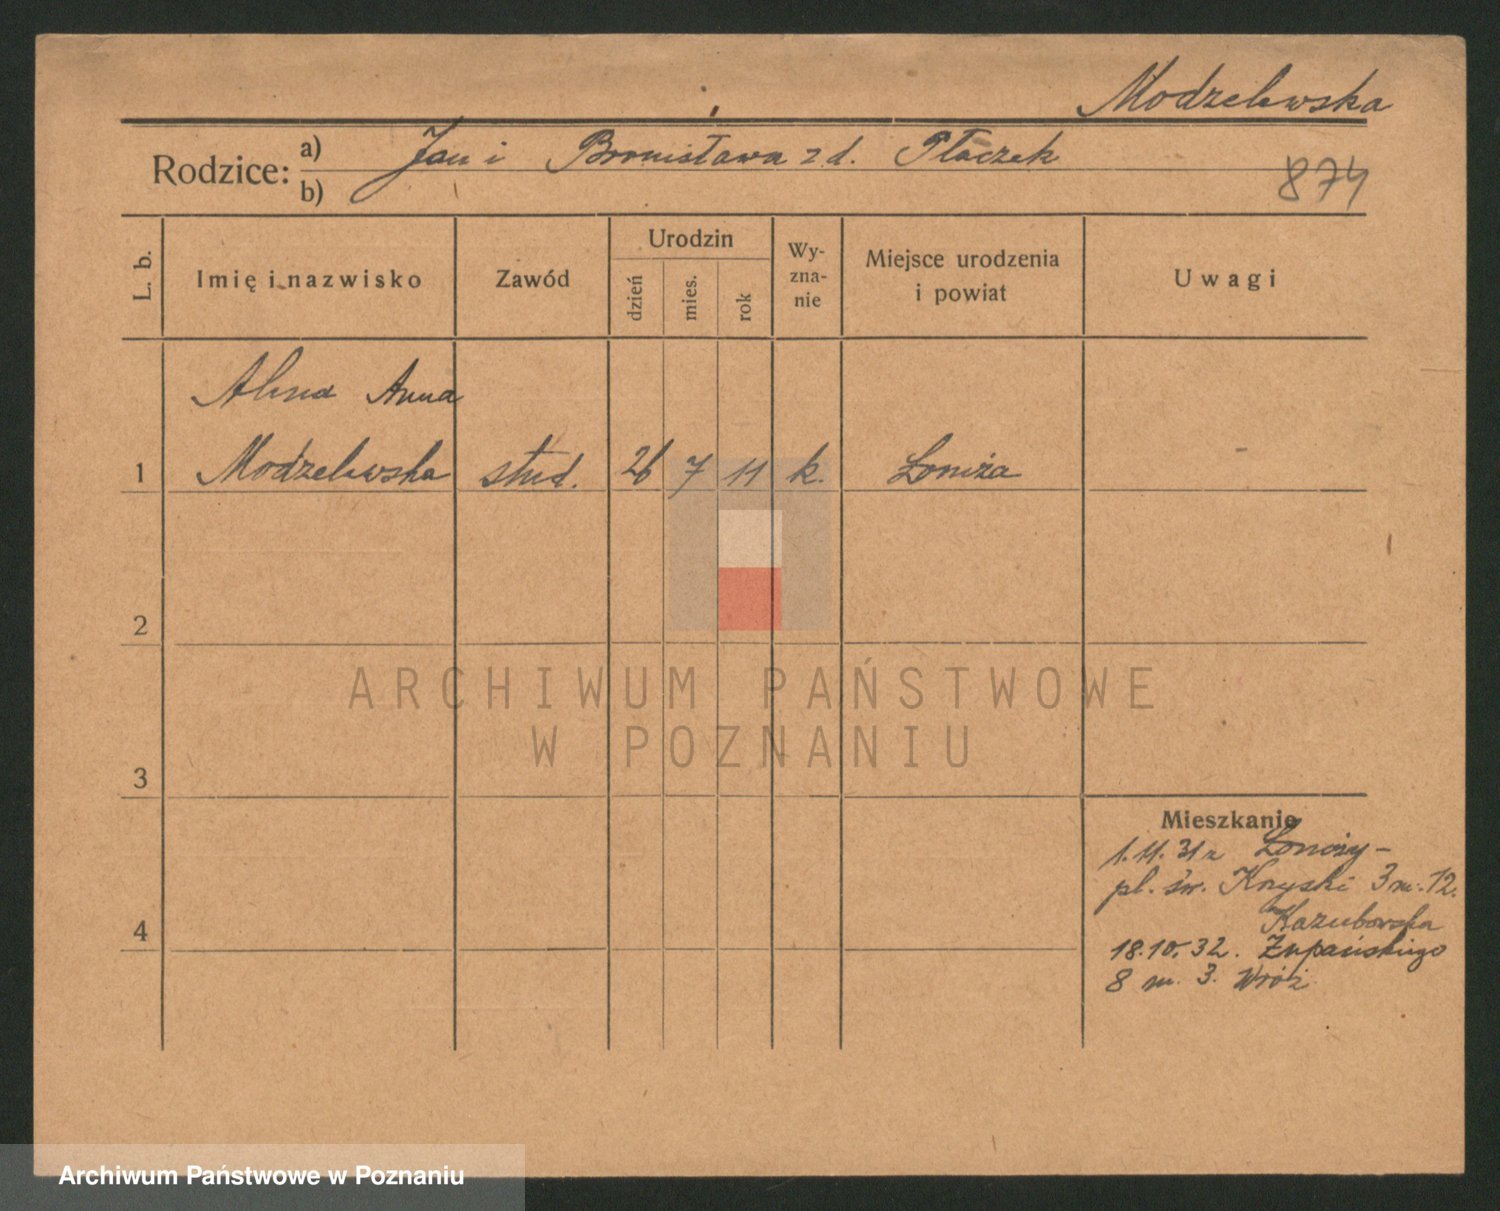 Modzelewska
Rodzice: a) Jan i Bronisława z d. Płaczek
b)
874
L. b.
Imię i nazwisko
Zawód
Urodzin
dzień
mies.
rok
Wy-
zna-
nie
Miejsce urodzenia
i powiat
Uwagi
Alina Anna
1 Modzelewska stud. 26 7 11 k. Łomża
2
3
4
Mieszkanie
1.11.31 z Łomży -
pl. św. Krzyski 3 m. 12.
Kazubowska
18.10.32. Żupańskiego
8 m. 3. Wróż
ARCHIWUM PAŃSTWOWE
W POZNANIU
Archiwum Państwowe w Poznaniu